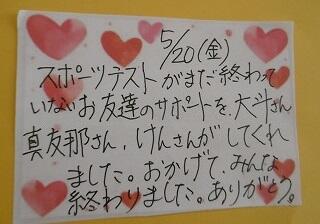 5/20(金)
スポーツテストがまだ終わって
いないお友達のサポートを、大斗さん
真友那さん、けんさんがしてくれ
ました。おかげで、みんな、
終わりました。ありがとう。